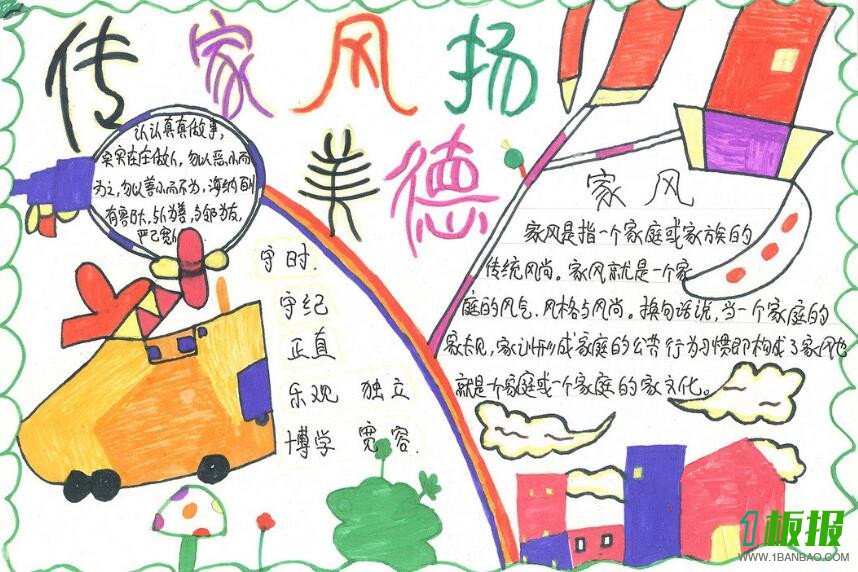 传家风扬
美德
认认真真做事,
实实在在做人,勿以恶小而
为之,勿以善小而不为,海纳百川
有容乃大,与人为善,与邻为友,
严己宽人
守时
守纪
正直
乐观 独立
博学 宽容
家风
家风是指一个家庭或家族的
传统风尚。家风就是一个家
庭的风气、风格与风尚。换句话说,当一个家庭的
家规,家训形成家庭的公共行为习惯即构成了家风也
就是一个家庭或一个家庭的家文化。
1板报
WWW.1BANBAO.COM